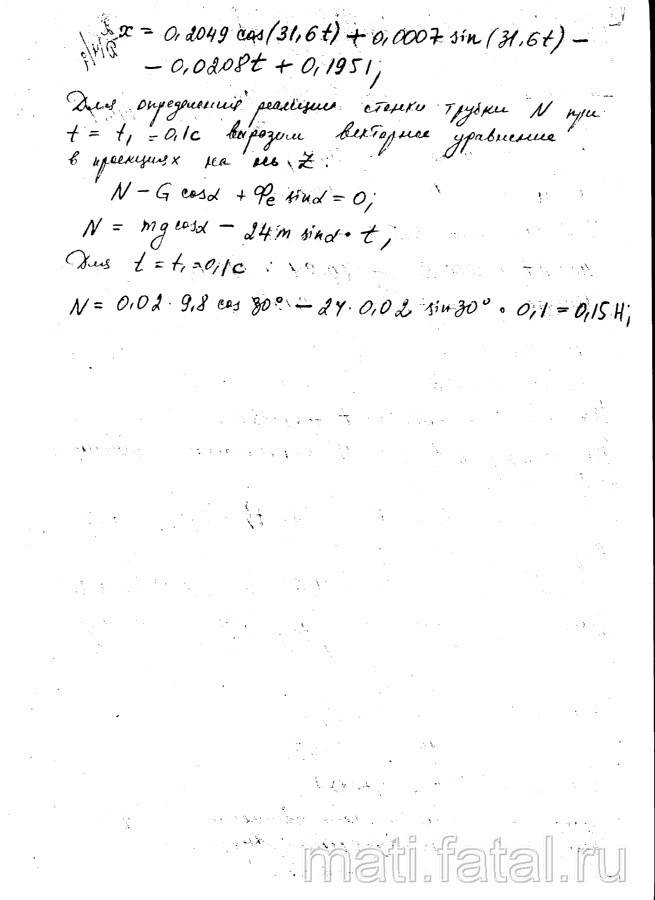 x = 0,2049 cos(31,6t) + 0,0007 sin(31,6t) −
− 0,0208t + 0,1951;
Для определения реакции стенки трубки N при
t = t₁ = 0,1с выразим векторное уравнение
в проекциях на ось Z:
N − G cosα + Фe sinα = 0;
N = mg cosα − 24m sinα · t;
Для t = t₁ = 0,1с:
N = 0,02 · 9,8 cos 30° − 24 · 0,02 sin 30° · 0,1 = 0,15 Н;
mati.fatal.ru